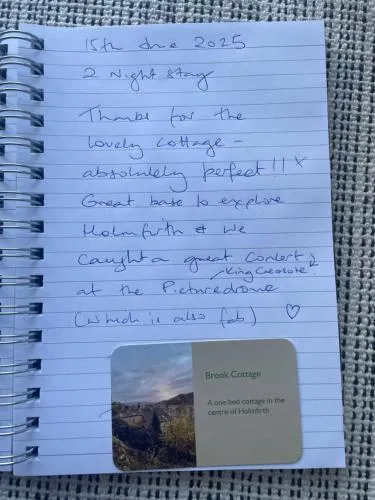 15th June 2025
2 Night stay
Thanks for the
lovely cottage -
absolutely perfect!! x
Great base to explore
Holmfirth & we
caught a great concert
King Creosote
at the Picturedrome
(which is also fab) ♡
Brook Cottage
A one bed cottage in the
centre of Holmfirth